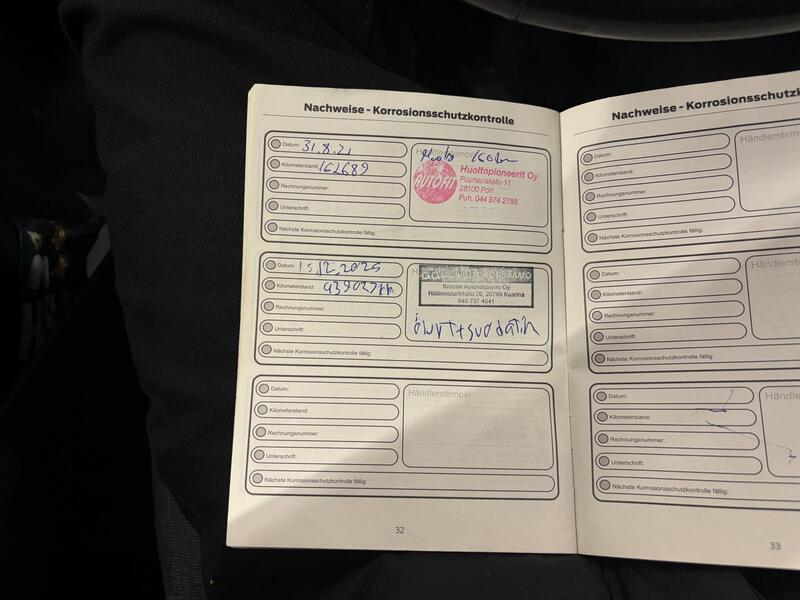 Nachweise - Korrosionsschutzkontrolle
Datum: 31.8.21
Kilometerstand: 162689
Rechnungsnummer:
Unterschrift:
Nächste Korrosionsschutzkontrolle fällig:
Händlerstempel
AUTOFIT
Huoltopioneerit Oy
Puunaulakatu 11
28100 Pori
Puh. 044 974 2788
Datum: 15.12.2025
Kilometerstand: km
Rechnungsnummer:
Unterschrift:
Nächste Korrosionsschutzkontrolle fällig:
Krossin Autokorjaamo Oy
Hallimestarinkatu 20, 20780 Kaarina
040 737 4041
öljyt+suodatin
Datum:
Kilometerstand:
Rechnungsnummer:
Unterschrift:
Nächste Korrosionsschutzkontrolle fällig:
Händlerstempel
32
Nachweise - Korrosionsschutzk
Datum:
Kilometerstand:
Rechnungsnummer:
Unterschrift:
Nächste Korrosionsschutzkontrolle fällig:
Händlerstem
Datum:
Kilometerstand:
Rechnungsnummer:
Unterschrift:
Nächste Korrosionsschutzkontrolle fällig:
Händlerstem
Datum:
Kilometerstand:
Rechnungsnummer:
Unterschrift:
Nächste Korrosionsschutzkontrolle fällig:
Händle
33